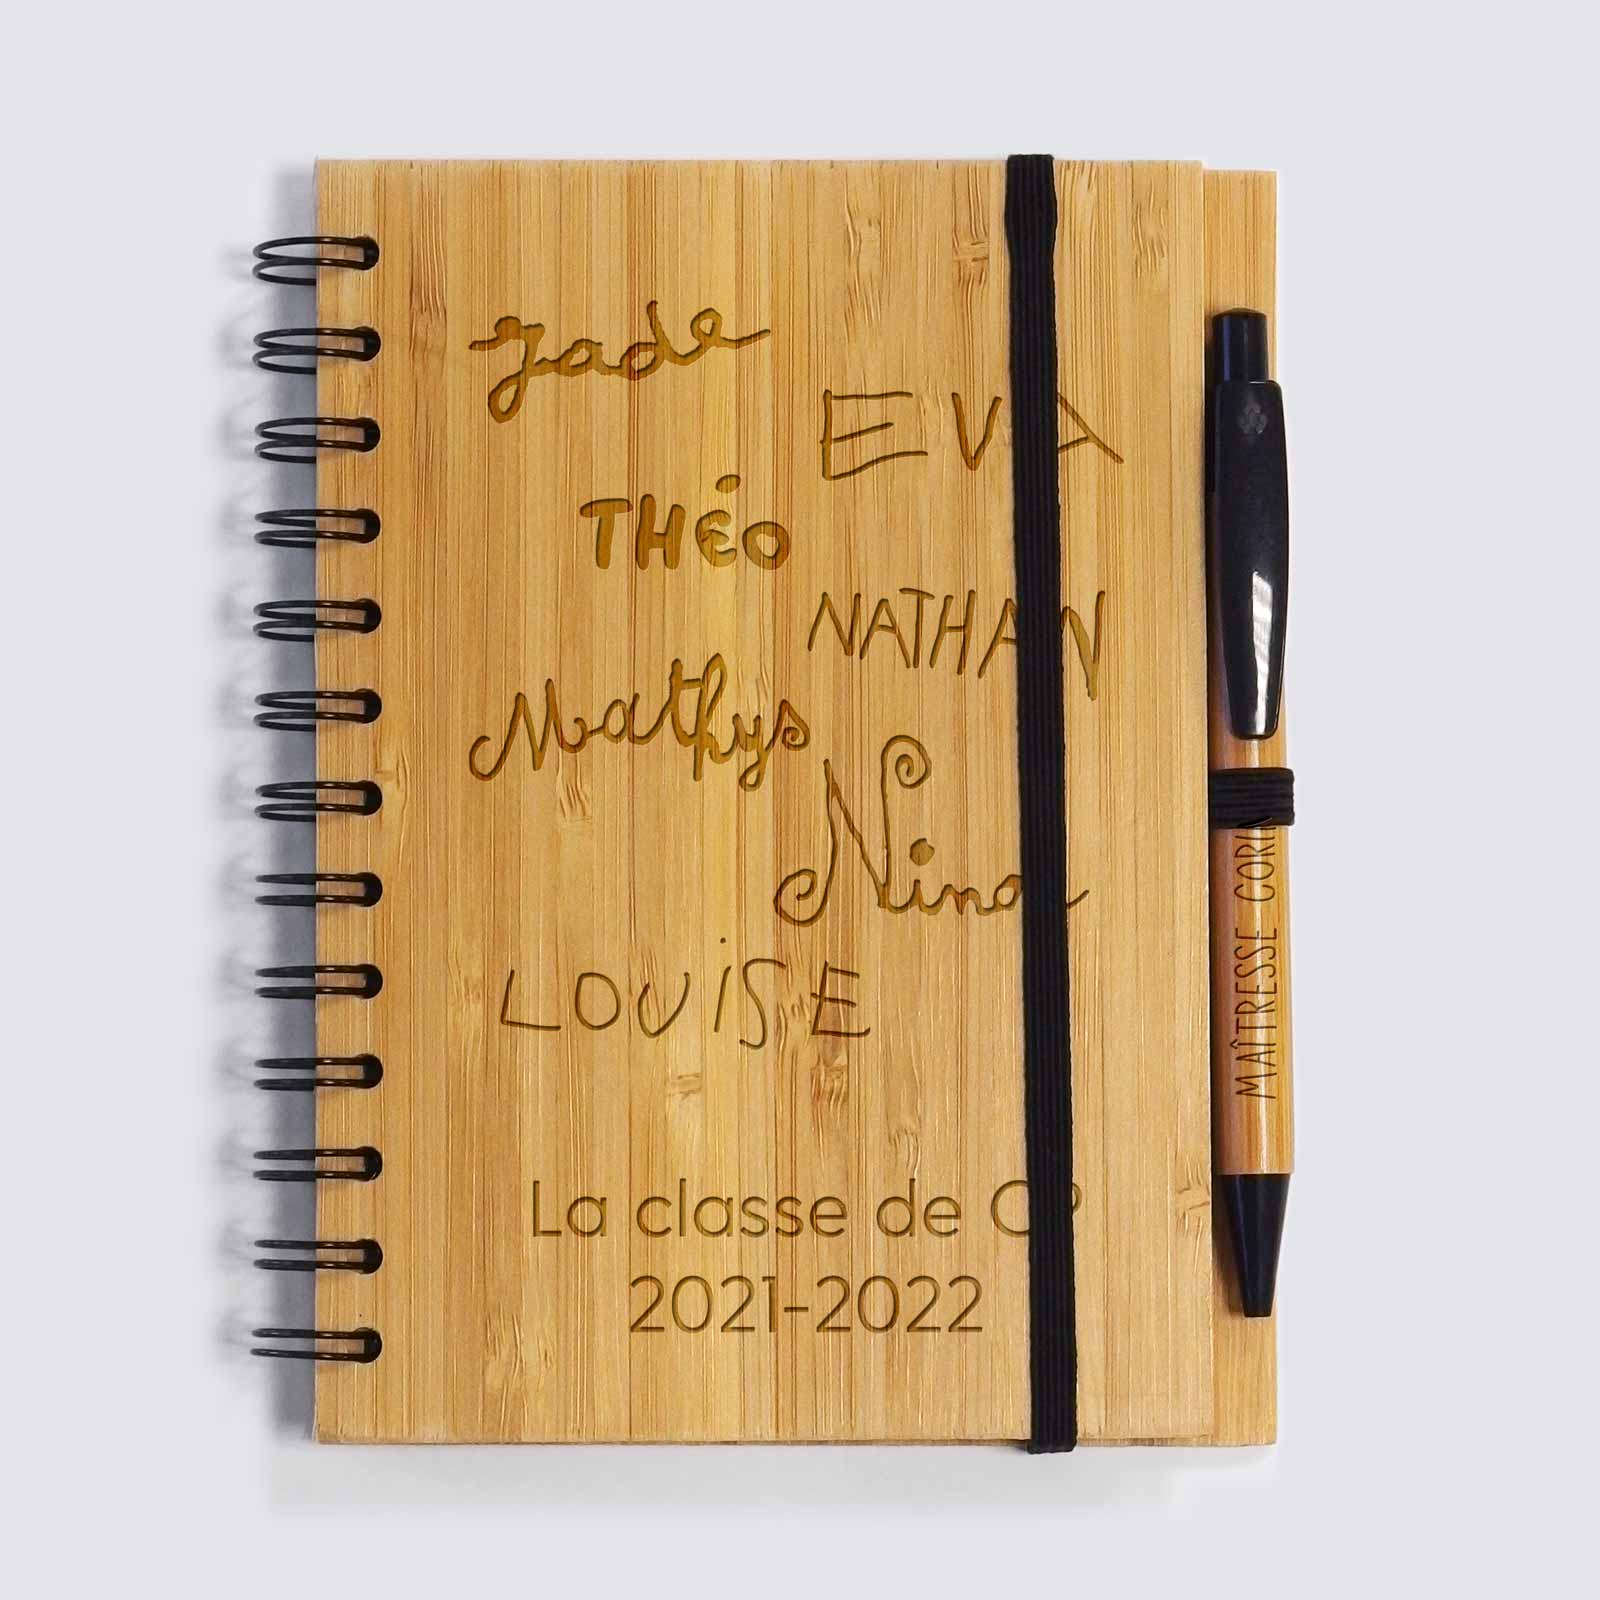 Jade
EVA
THÉO
NATHAN
Mathys
Nina
LOUiSE
La classe de CP
2021-2022
MAÎTRESSE